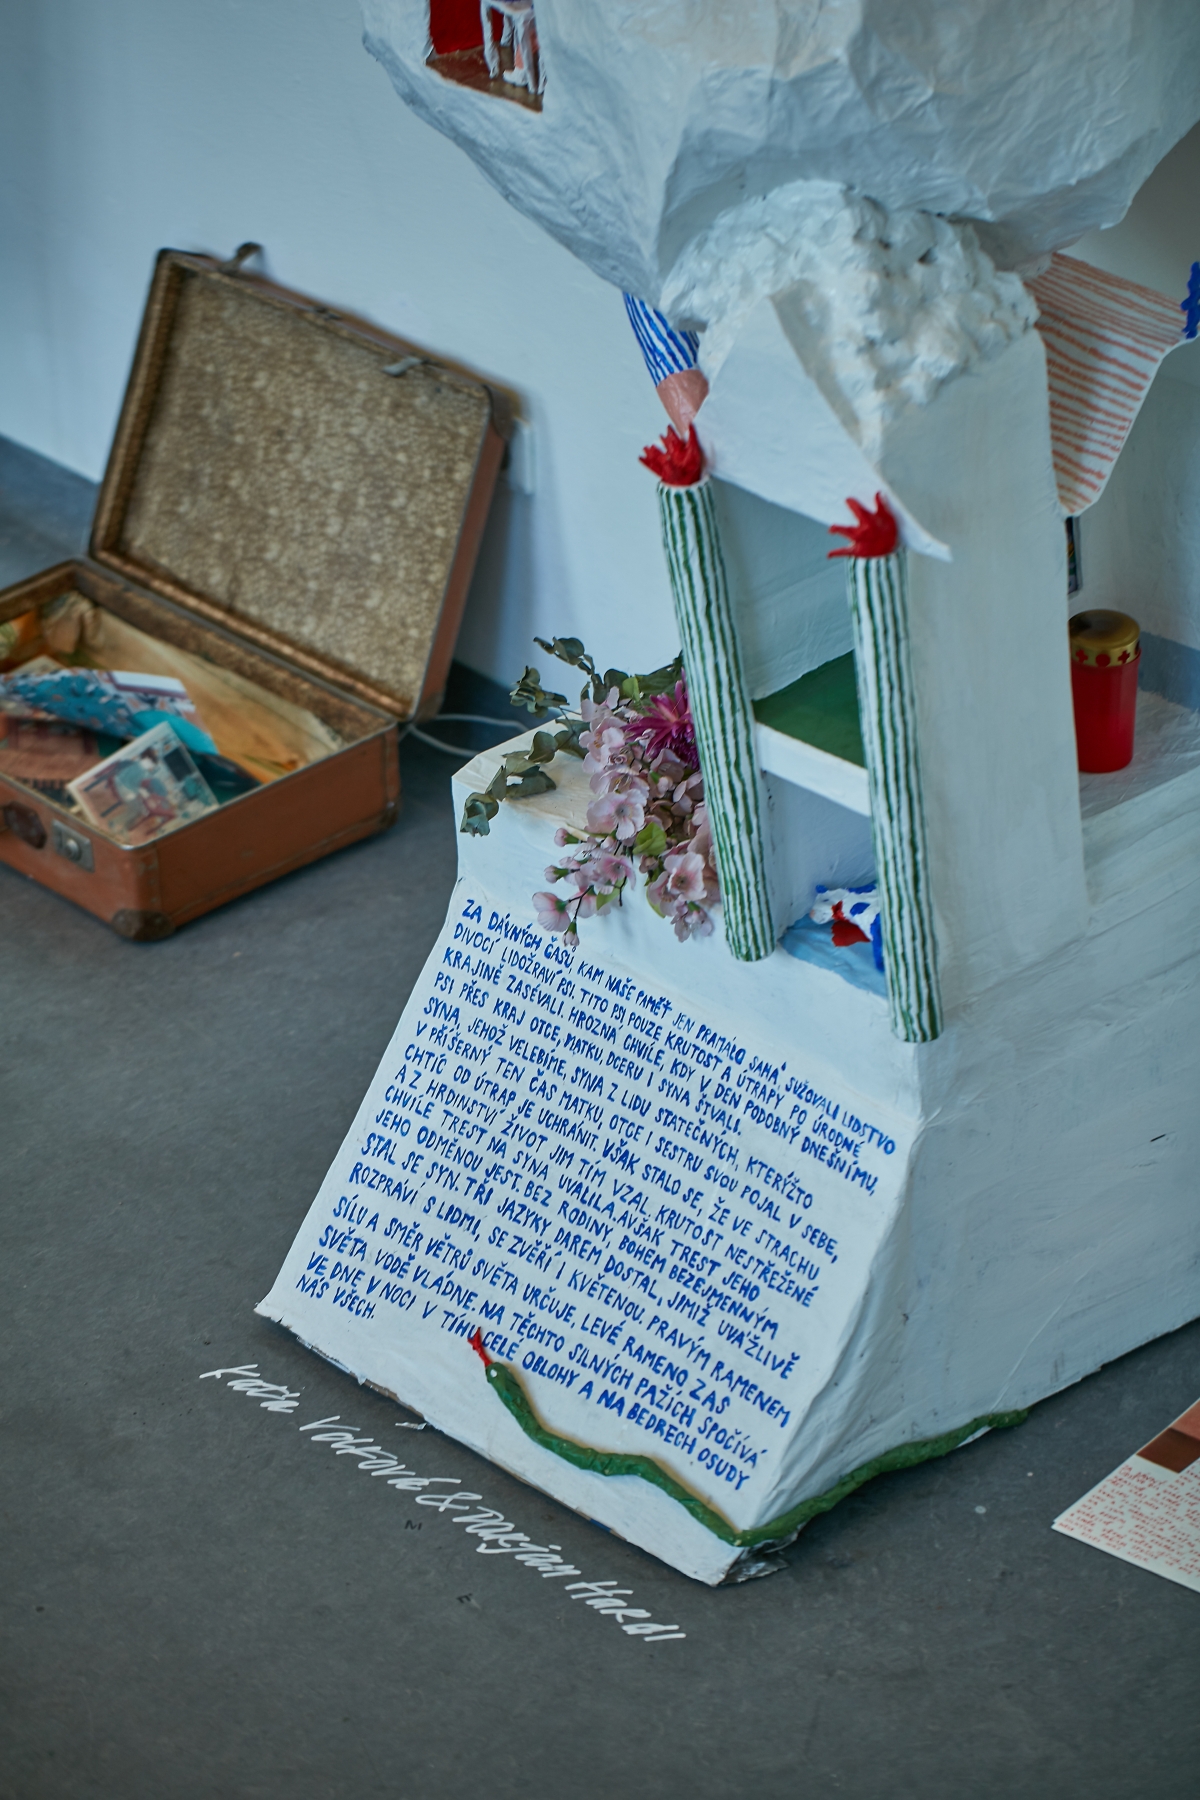 ZA DÁVNÝCH ČASŮ, KAM NAŠE PAMĚŤ JEN PRAMÁLO SAHÁ, SUŽOVALI LIDSTVO
DIVOCÍ LIDOŽRAVÍ PSI. TITO PSI POUZE KRUTOST A ÚTRAPY PO ÚRODNÉ
KRAJINĚ ZASÉVALI. HROZNÁ CHVÍLE, KDY V DEN PODOBNÝ DNEŠNÍMU,
PSI PŘES KRAJ OTCE, MATKU, DCERU I SYNA ŠTVALI.
SYNA, JEHOŽ VELEBÍME, SYNA Z LIDU STATEČNÝCH, KTERÝŽTO
V PŘÍŠERNÝ TEN ČAS MATKU, OTCE I SESTRU SVOU POJAL V SEBE,
CHTÍC OD ÚTRAP JE UCHRÁNIT. VŠAK STALO SE, ŽE VE STRACHU
A Z HRDINSTVÍ ŽIVOT JIM TÍM VZAL. KRUTOST NESTŘEŽENÉ
CHVÍLE TREST NA SYNA UVALILA. AVŠAK TREST JEHO
JEHO ODMĚNOU JEST. BEZ RODINY, BOHEM BEZEJMENNÝM
STAL SE SYN. TŘI JAZYKY DAREM DOSTAL, JIMIŽ UVÁŽLIVĚ
ROZPRÁVÍ S LIDMI, SE ZVĚŘÍ I KVĚTENOU. PRAVÝM RAMENEM
SÍLU A SMĚR VĚTRŮ SVĚTA URČUJE, LEVÉ RAMENO ZAS
SVĚTA VODĚ VLÁDNE. NA TĚCHTO SILNÝCH PAŽÍCH SPOČÍVÁ
VE DNE V NOCI V TÍHU CELÉ OBLOHY A NA BEDRECH OSUDY
NÁS VŠECH.
Kačža Volfová & Darjan Hardi